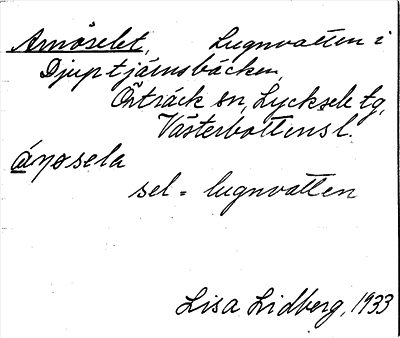 Arnöselet, Lugnvatten i
Djuptjärnsbäcken,
Örträck sn, Lycksele tg,
Västerbottens l.
sel = lugnvatten
Lisa Lidberg, 1933